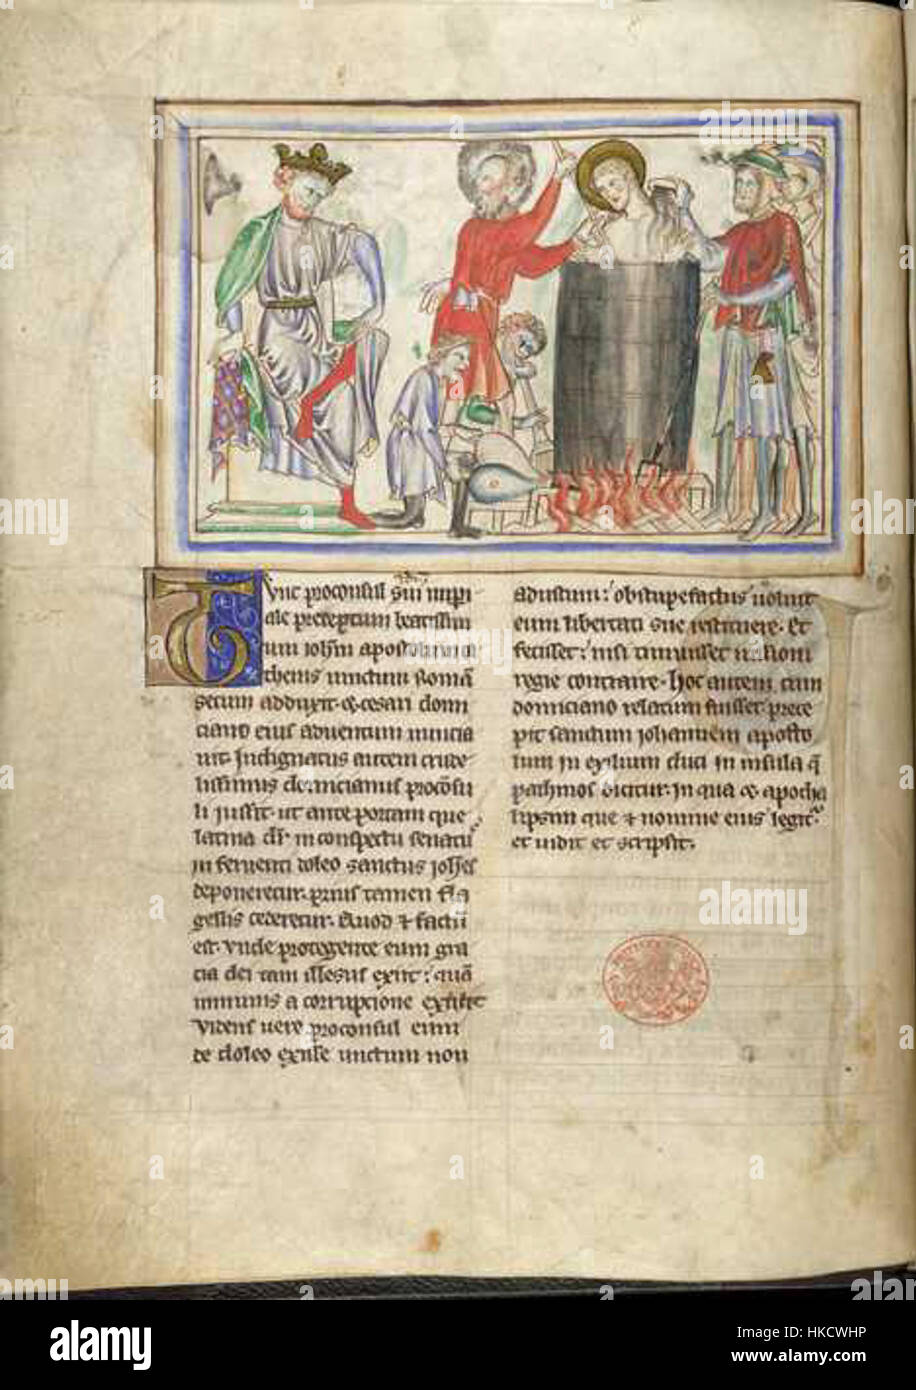 Tunc proconsul scdm impi-
ale preceptum beatissim
um iohem apostolum a
thenis uinctum Romam
secum adduxit. et cesari domi
ciano eius aduentum nuncia
uit. Indignatus autem crude
lissimus domicianus proconsu
li iussit. ut ante portam que
latina dr in conspectu senatus
in feruenti doleo sanctus iohes
deponeretur. prius tamen fla
gellis cederetur. Quod et factum
est. Unde protegente eum gra
cia dei tam illesus exiit: quam
immunis a corrupcione extitit
Videns uero proconsul eum
de doleo exisse unctum non
adustum: obstupefactus uoluit
eum libertati sue restituere. Et
fecisset: nisi timuisset iussioni
regie contraire. Hoc autem cum
domiciano relatum fuisset prece
pit sanctum iohannem aposto
lum in exilium duci in insula que
pathmos dicitur. In qua et apocha
lipsim que et nomine eius legitur
et uidit et scripsit.
alamy
a
alamy
Image ID: HKCWHP
www.alamy.com